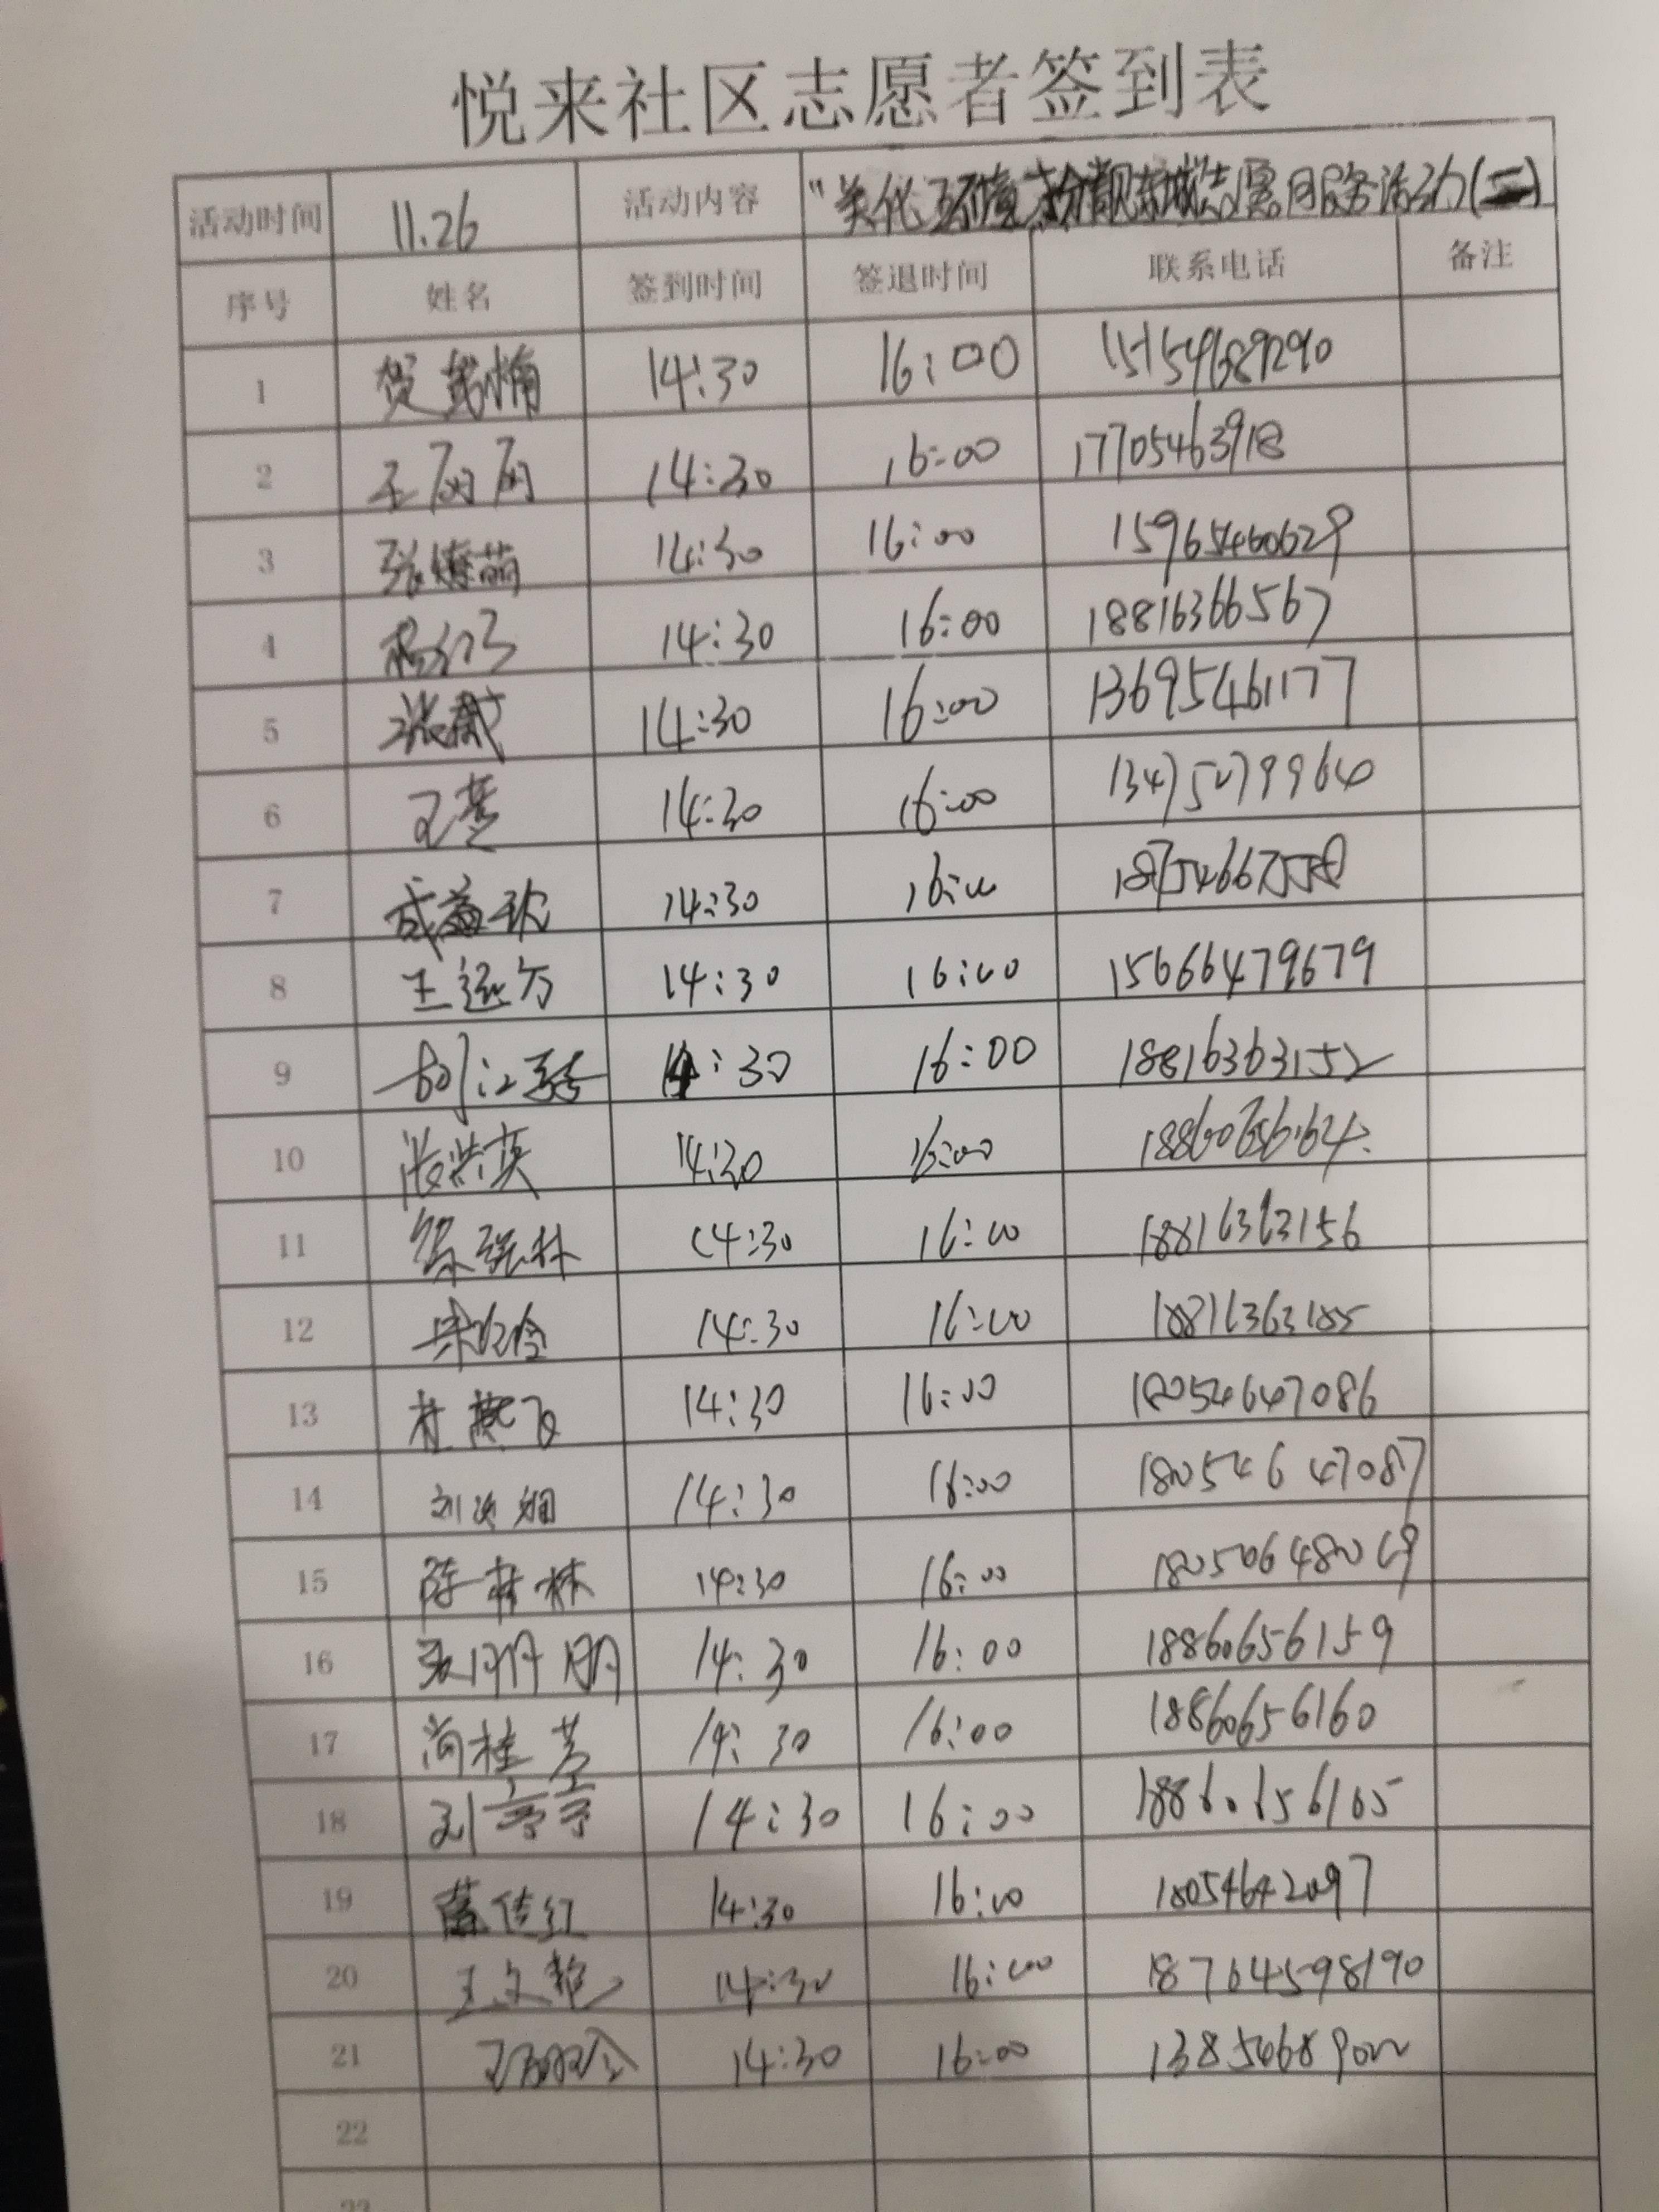 悦来社区志愿者签到表
活动时间 11.26 活动内容 "美化环境 扮靓东城志愿服务活动(二)
序号 姓名 签到时间 签退时间 联系电话 备注
1 贺 14:30 16:00 15154689290
2 王丽丽 14:30 16:00 17705463918
3 张 萌 14:30 16:00 15965460629
4 14:30 16:00 18816366567
5 张 14:30 16:00 13695461177
6 14:30 16:00 13475279964
7 成 14:30 16:00 18754667558
8 王运方 14:30 16:00 15666479679
9 14:30 16:00 18816363152
10 张洪英 14:30 16:00 18860656164
11 14:30 16:00 18816363156
12 14:30 16:00 18816363185
13 杜燕飞 14:30 16:00 18054647086
14 刘 娟 14:30 16:00 18054647087
15 陈林林 14:30 16:00
16 14:30 16:00 18860656159
17 尚桂芳 14:30 16:00 18860656160
18 刘亭亭 14:30 16:00 18860656165
19 传红 14:30 16:00 18054642097
20 王文艳 14:30 16:00 18764598190
21 14:30 16:00
22
23